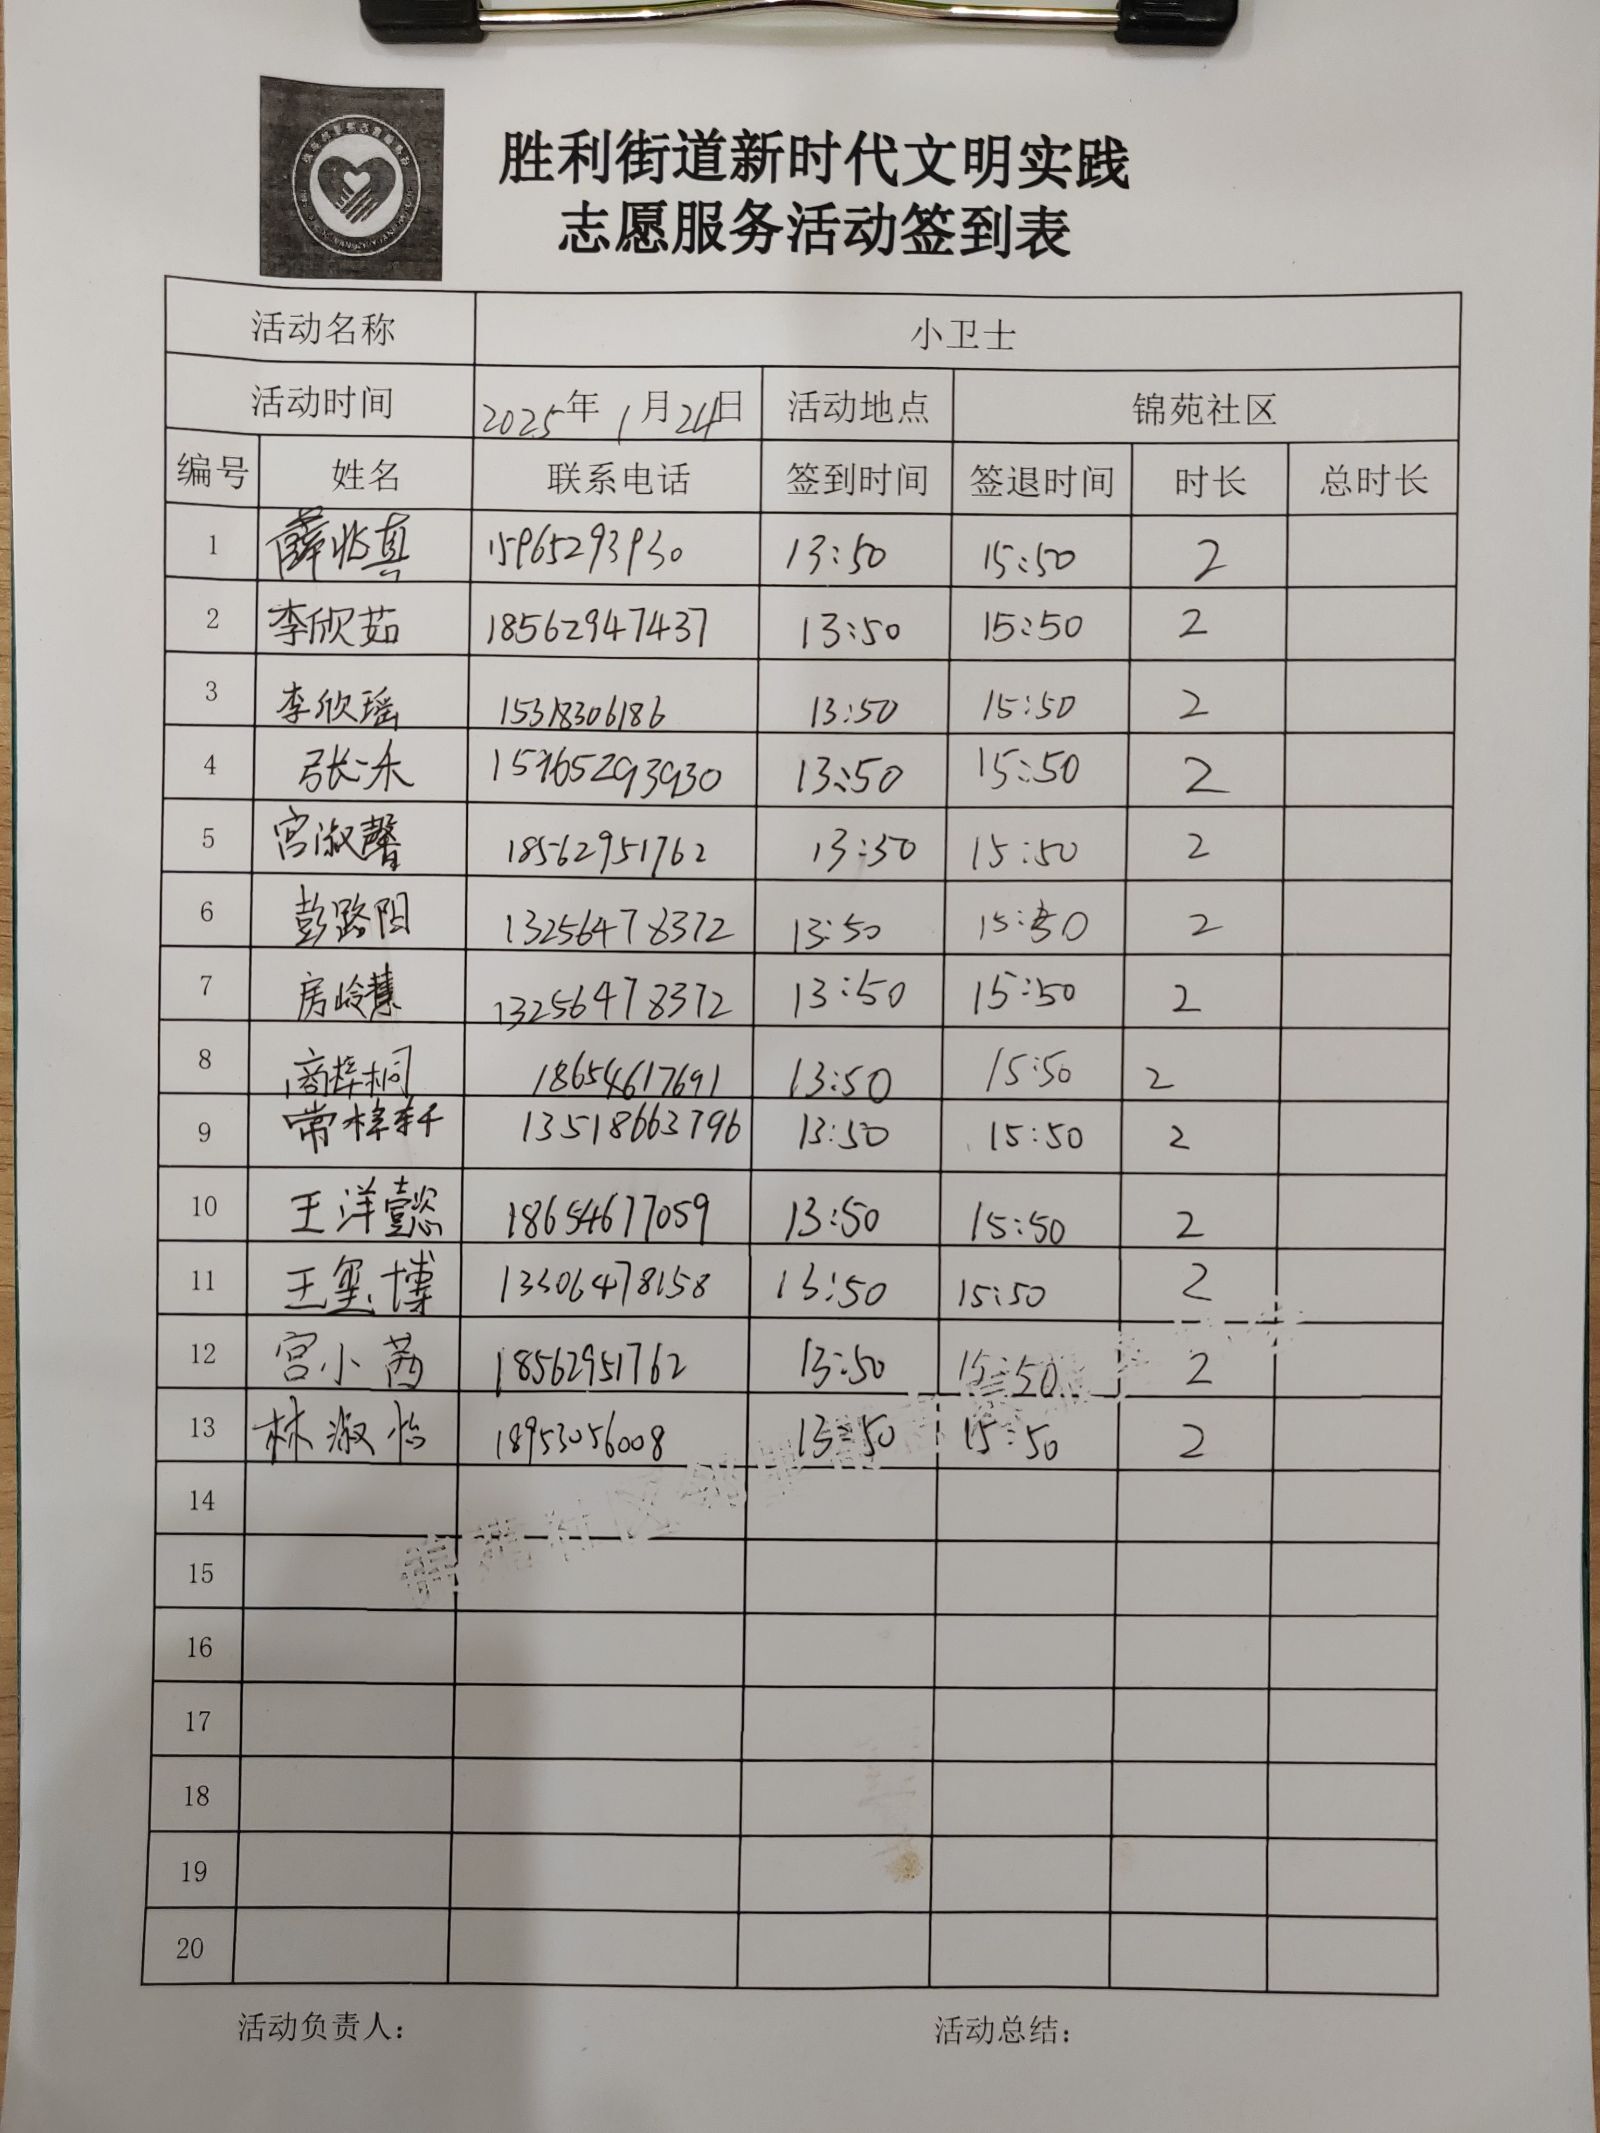 胜利街道新时代文明实践
志愿服务活动签到表
活动名称 小卫士
活动时间 2025年 1月24日 活动地点 锦苑社区
编号 姓名 联系电话 签到时间 签退时间 时长 总时长
1 薛兆真 15965293930 13:50 15:50 2
2 李欣茹 18562947437 13:50 15:50 2
3 李欣瑶 15318306186 13:50 15:50 2
4 张一禾 15965293930 13:50 15:50 2
5 宫淑馨 18562951762 13:50 15:50 2
6 彭路阳 13256478372 13:50 15:50 2
7 房岭慧 13256478372 13:50 15:50 2
8 商梓桐 18654617691 13:50 15:50 2
9 常梓轩 13518663796 13:50 15:50 2
10 王洋懿 18654677059 13:50 15:50 2
11 王玺博 13306478158 13:50 15:50 2
12 宫小茜 18562951762 13:50 15:50 2
13 林淑怡 18953056008 13:50 15:50 2
14
15
16
17
18
19
20
活动负责人: 活动总结: